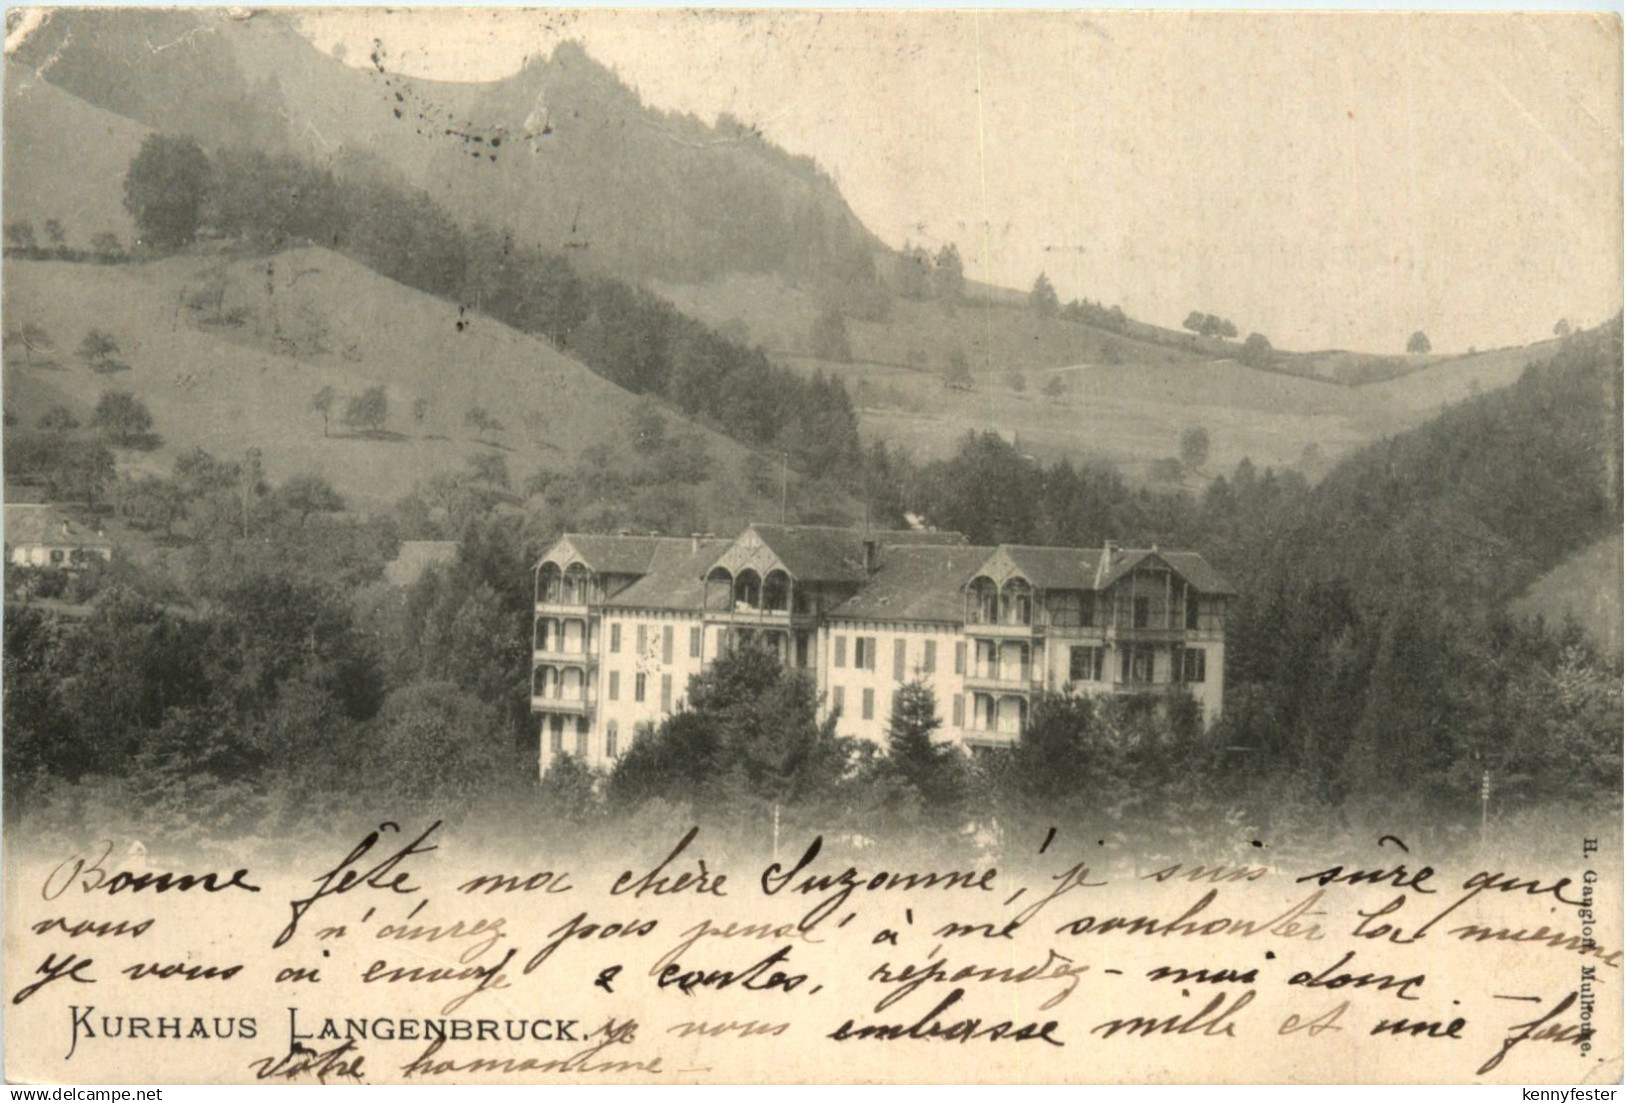 Bonne fête, ma chère Suzanne, je suis sûre que
vous n'aurez pas pensé à me souhaiter la mienne
je vous ai envoyé 2 cartes, répondez-moi donc
KURHAUS LANGENBRUCK.
je vous embrasse mille et une fois
vôtre homonyme
H. Gangloff, Mulhouse.
delcampe.net
kennyfester